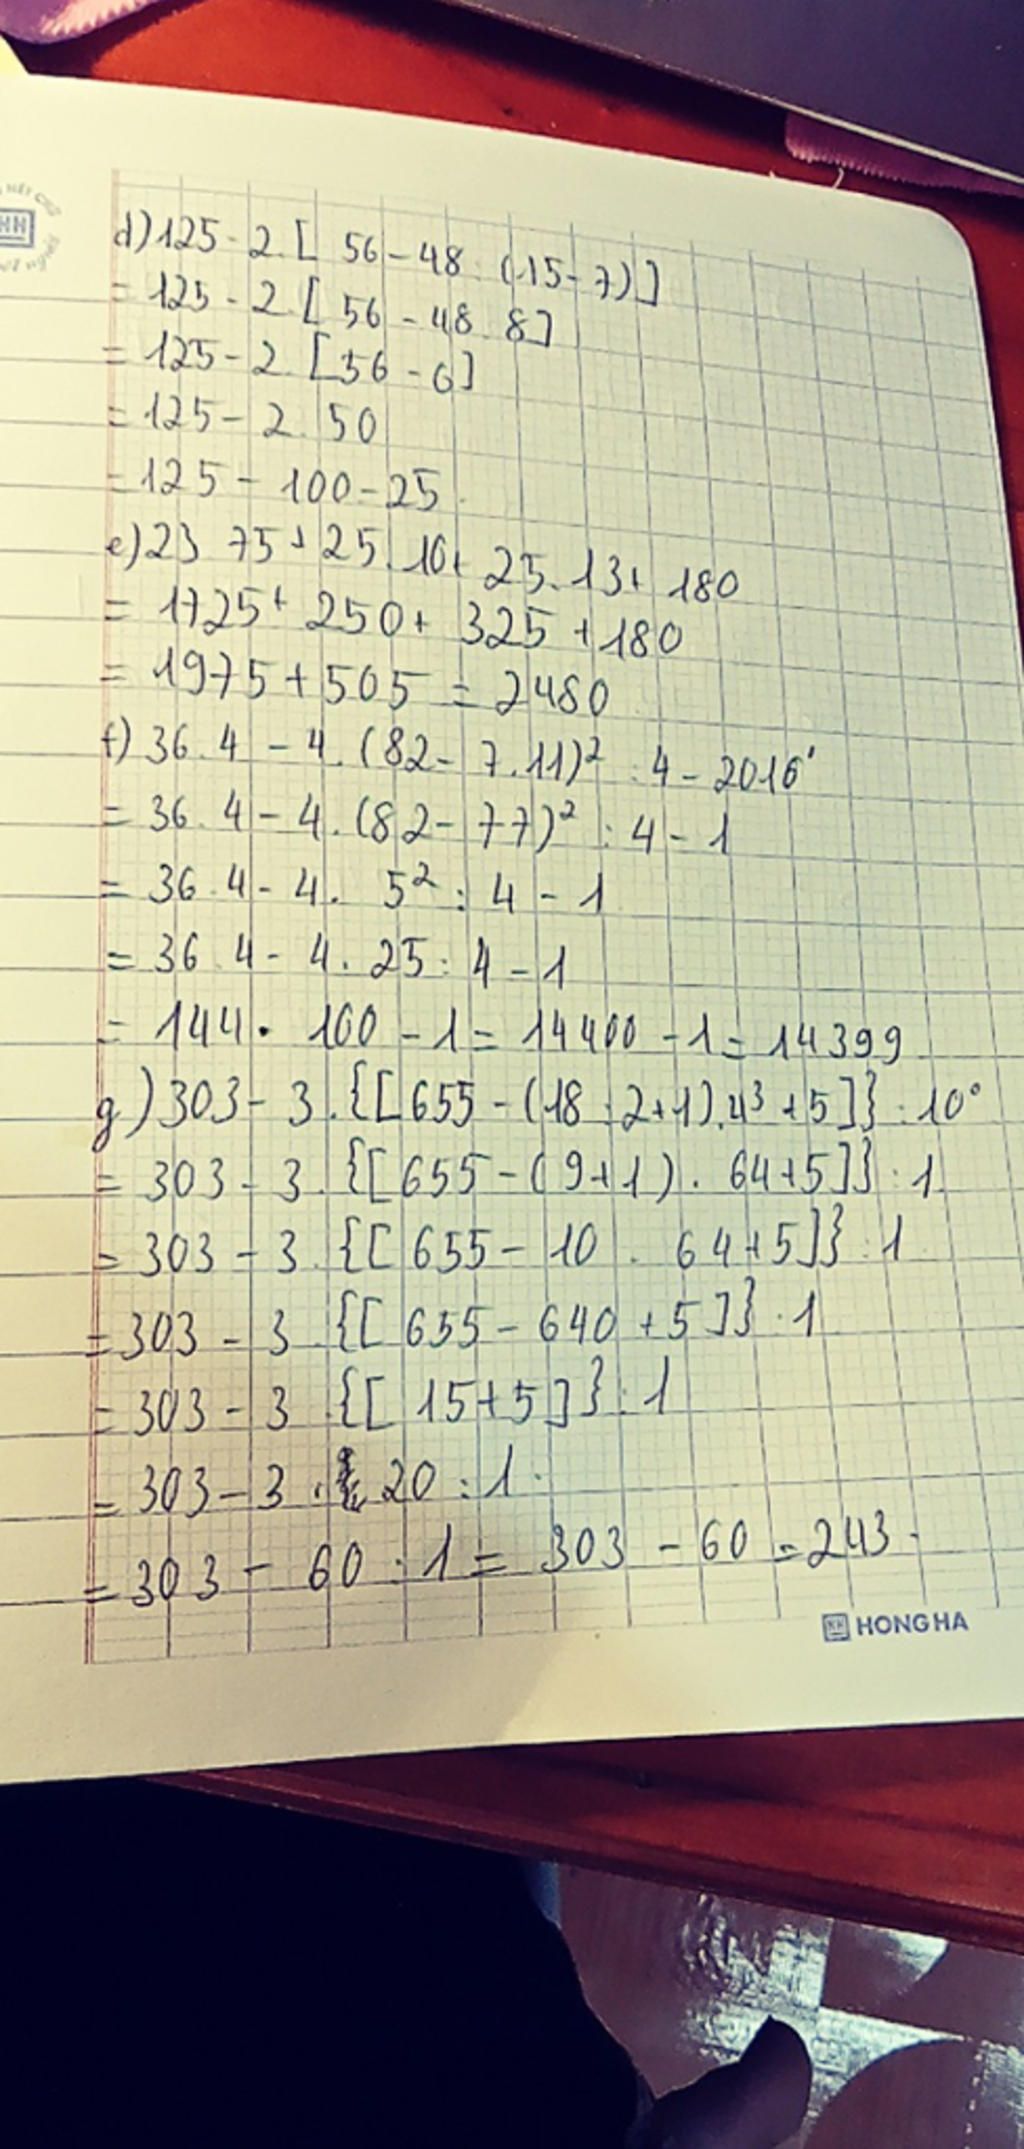 d) 125 - 2. [ 56 - 48 : (15 - 7) ]
= 125 - 2. [ 56 - 48 : 8 ]
= 125 - 2. [ 56 - 6 ]
= 125 - 2. 50
= 125 - 100 = 25.
e) 23 . 75 + 25. 10 + 25. 13 + 180
= 1725 + 250 + 325 + 180
= 1975 + 505 = 2480
f) 36.4 - 4. (82 - 7.11)² : 4 - 2016⁰
= 36. 4 - 4. (82 - 77)² : 4 - 1
= 36.4 - 4. 5² : 4 - 1
= 36.4 - 4. 25 : 4 - 1
= 144 . 100 - 1 = 14400 - 1 = 14399
g) 303 - 3. {[655 - (18 : 2 + 1).4³ + 5]} : 10⁰
= 303 - 3. {[655 - (9 + 1) . 64 + 5]} : 1
= 303 - 3. {[655 - 10 . 64 + 5]} : 1
= 303 - 3 . {[655 - 640 + 5]} : 1
= 303 - 3 {[ 15 + 5 ]} : 1
= 303 - 3 . 20 : 1.
= 303 - 60 : 1 = 303 - 60 = 243.
HONG HA